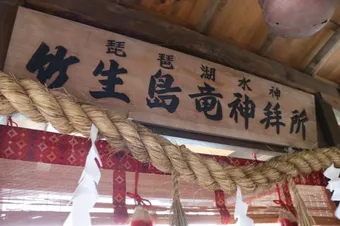 琵琶湖水神
竹生島竜神拝所